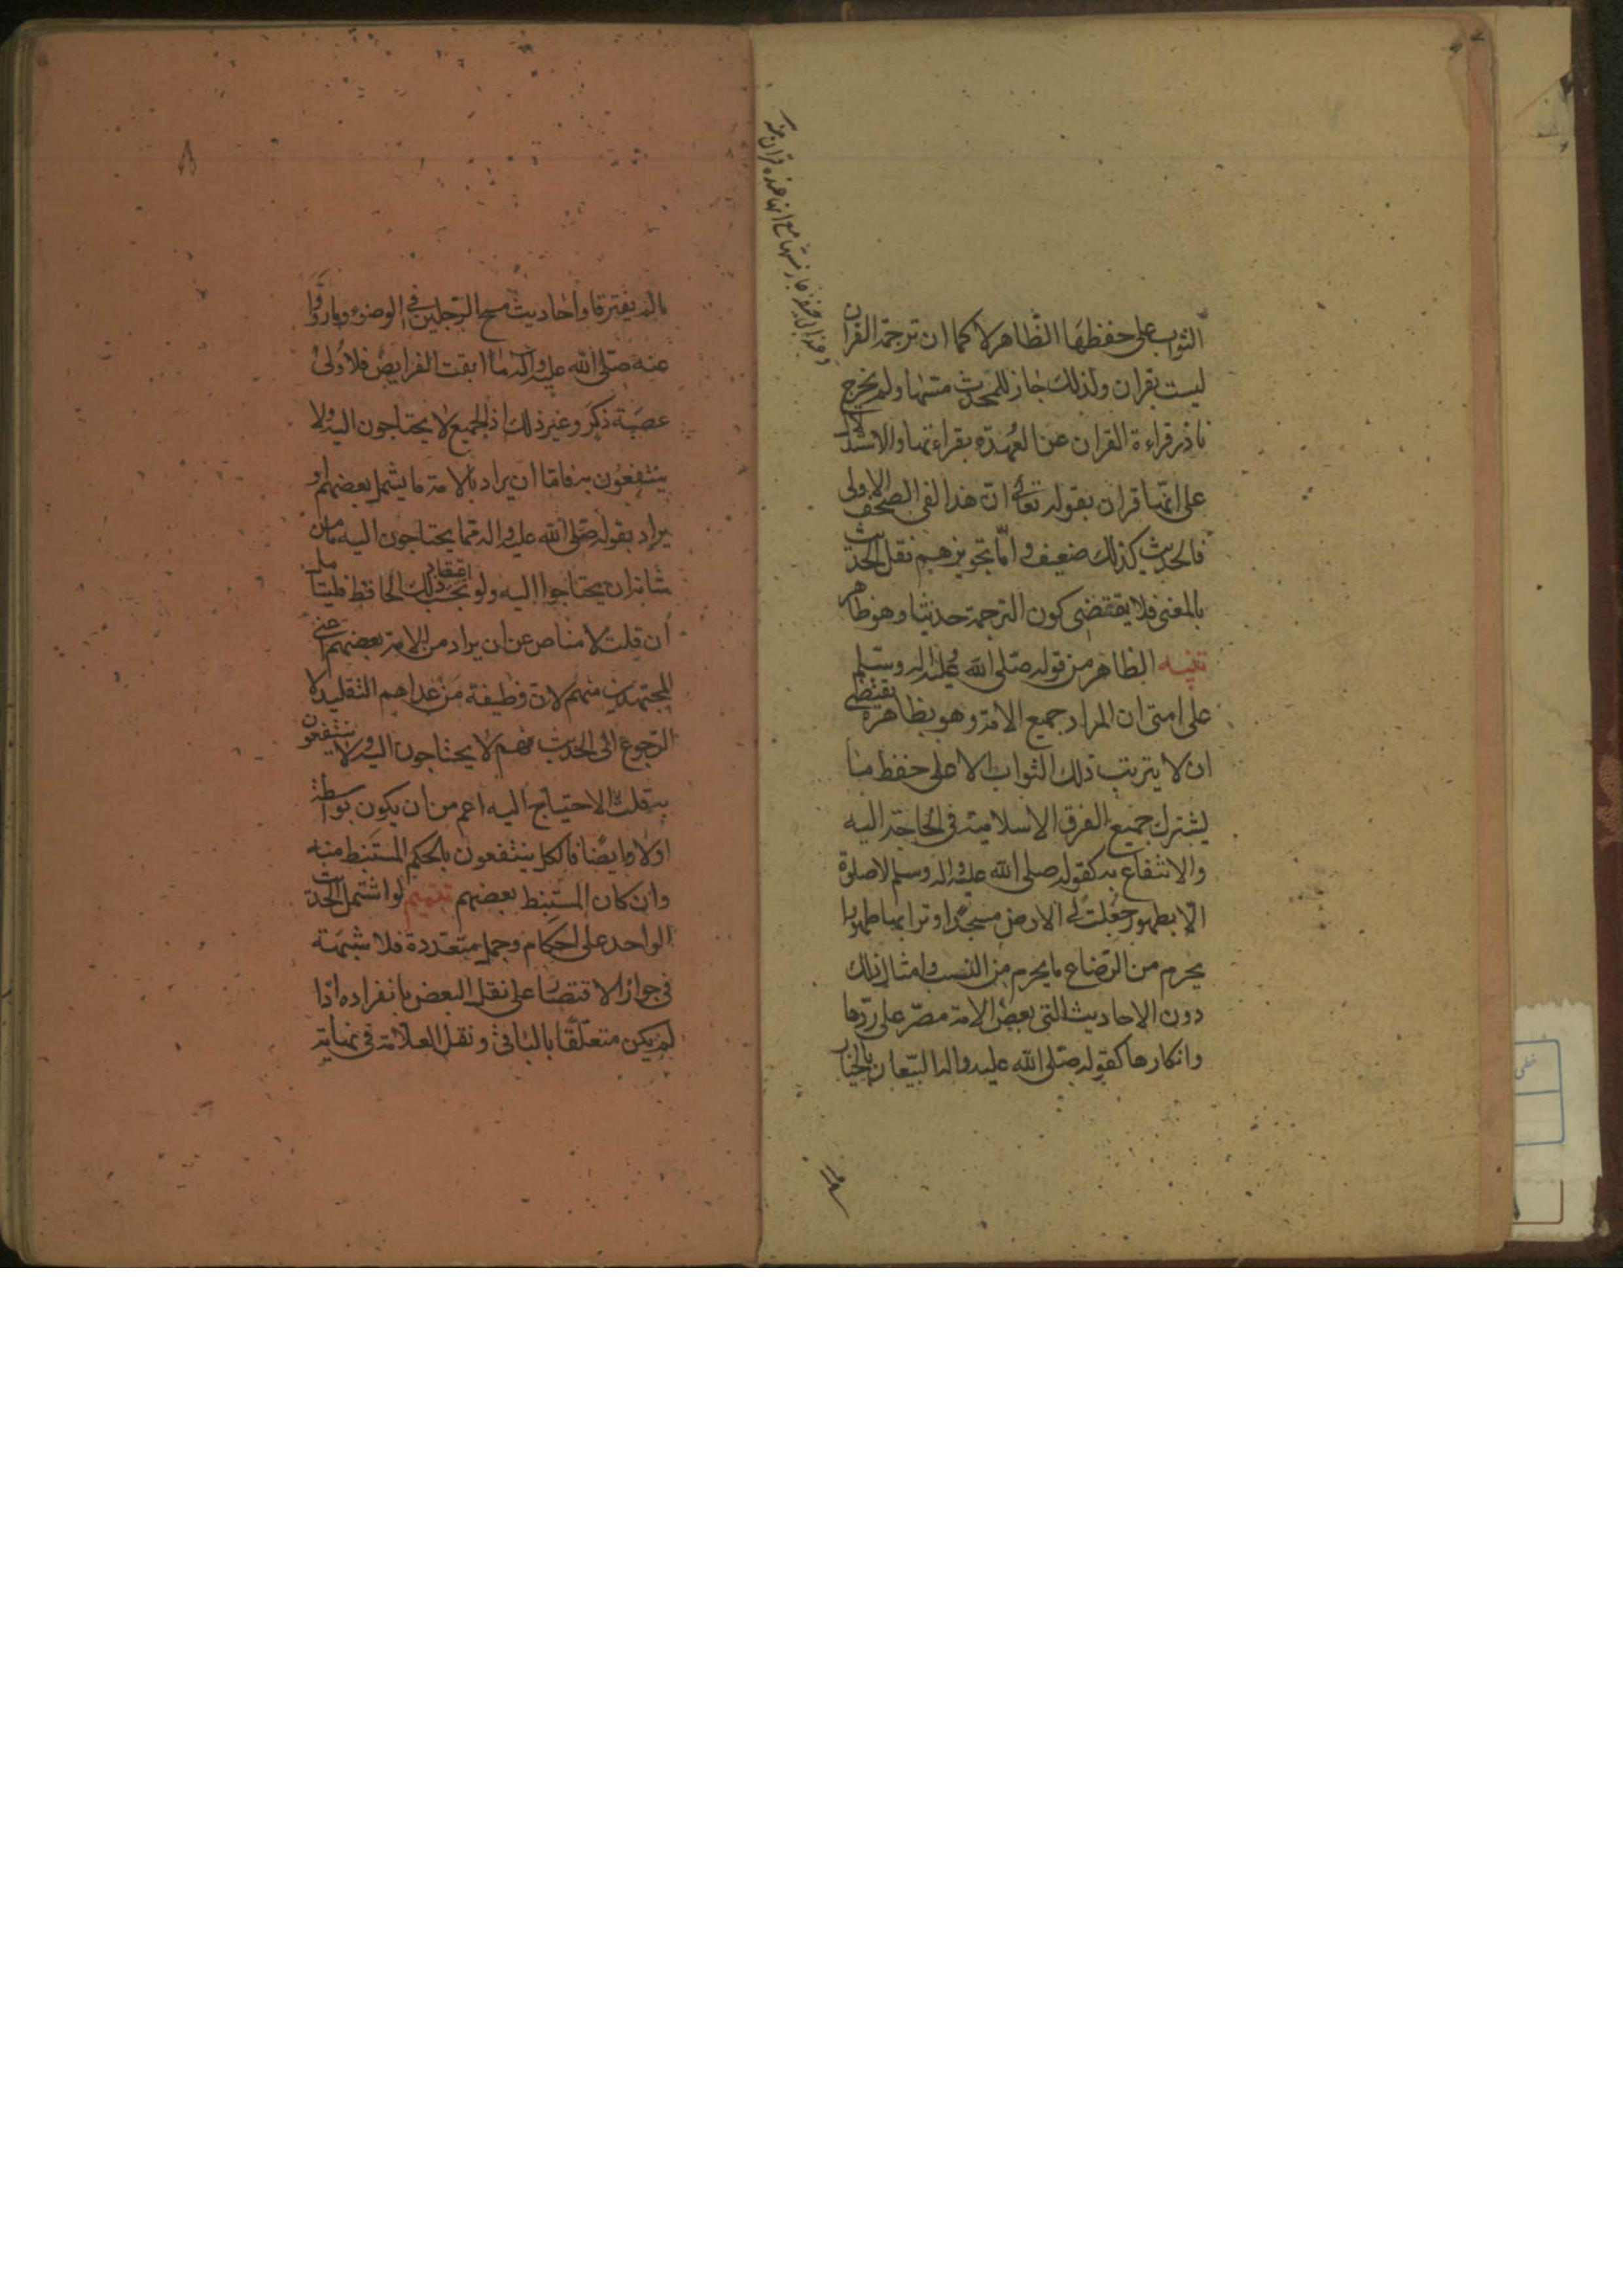 الثواب على حفظها الظاهر لا كما ان ترجمة القران
ليست بقران ولذلك جاز للمحدث مسّها ولم يخرج
ناذر قراءة القران عن العهدة بقراءتها والاستدلال
على انها قران بقوله تعالى ان هذا لفى الصحف الاولى
فالحديث كذلك ضعيف وامّا تجويزهم نقل الحديث
بالمعنى فلا يقتضى كون الترجمة حديثا وهو ظاهر
تنبيه الظاهر من قوله صلّى الله عليه واله وسلم
على امتى ان المراد جميع الامة وهو بظاهره يقتضى
ان لا يترتب ذلك الثواب الا على حفظ ما
يشترك جميع الفرق الاسلامية فى الحاجة اليه
والانتفاع به كقوله صلى الله عليه واله وسلم لا صلوة
الّا بطهور جعلت لى الارض مسجدا وترابها طهورا
يحرم من الرّضاع ما يحرم من النسب وامثال ذلك
دون الاحاديث التى بعض الامة مصرّ على ردّها
وانكارها كقوله صلّى الله عليه واله البيّعان بالخيار
٨
مالم يفترقا واحاديث مسح الرجلين فى الوضوء وما رووا
عنه صلّى الله عليه واله ما ابقت الفرايض فلاولى
عصبة ذكر وغير ذلك اذ الجميع لا يحتاجون اليه ولا
ينتفعون به فامّا ان يراد بالامة ما يشمل بعضهم او
يراد بقوله صلّى الله عليه واله مما يحتاجون اليه ما من
شانه ان يحتاجوا اليه ولو بحسب اعتقاد ذلك الحافظ فليتامل
ان قلت لا مناص عن ان يراد من الامة بعضهم اعنى
المجتهدين منهم لان وظيفة من عداهم التقليد لا
الرجوع الى الحديث فهم لا يحتاجون اليه ولا ينتفعون
به قلت الاحتياج اليه اعم من ان يكون بواسطة
اولا وايضا فالكل ينتفعون بالحكم المستنبط منه
وان كان المستنبط بعضهم تتميم لو اشتمل الحديث
الواحد على احكام وجمل متعددة فلا شبهة
فى جواز الاقتصار على نقل البعض بانفراده اذا
لم يكن متعلّقا بالباقى ونقل العلامة فى نهايته